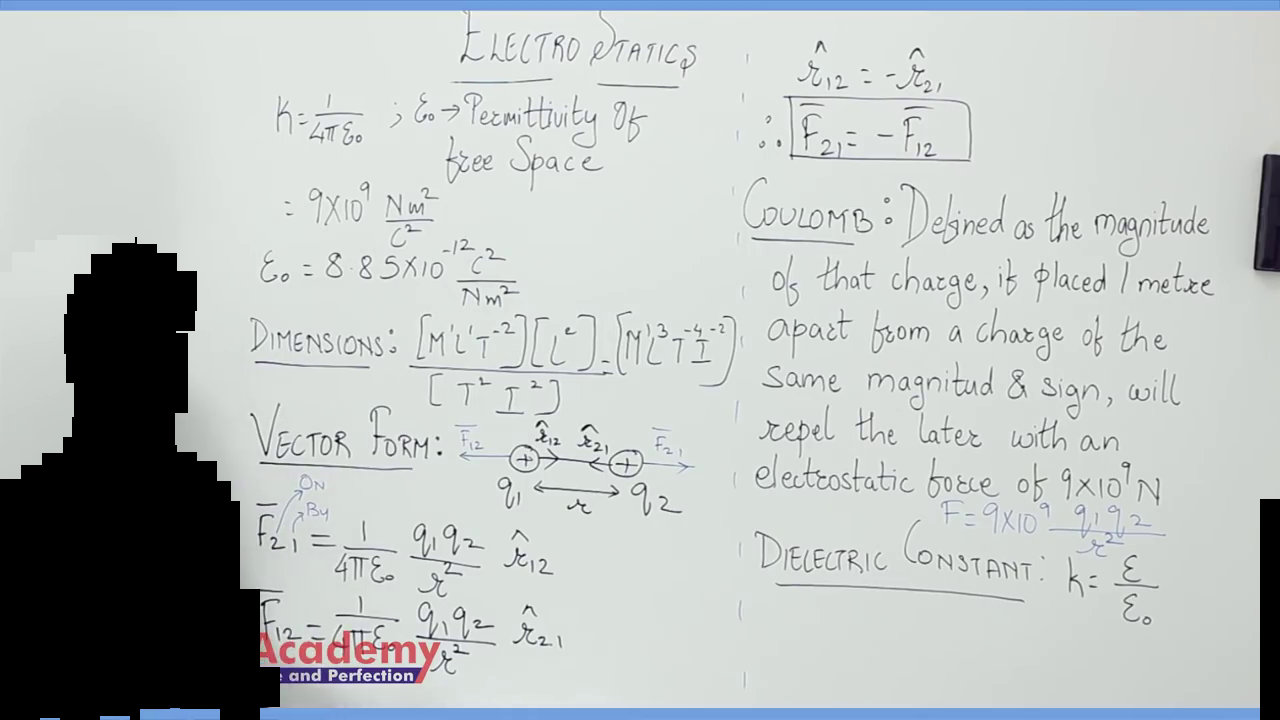 ELECTROSTATICS
K = 1/4πε₀ ; ε₀ → Permittivity Of
free Space
= 9X10⁹ Nm²/C²
ε₀ = 8.85X10⁻¹² C²/Nm²
DIMENSIONS: [M¹L¹T⁻²][L²]/[T² I²] = [M¹L³T⁻⁴I⁻²]
VECTOR FORM:
F̅₁₂ r̂₁₂ r̂₂₁ F̅₂₁
+ +
q₁ r q₂
ON
By
F̅₂₁ = 1/4πε₀ q₁q₂/r² r̂₁₂
F̅₁₂ = 1/4πε₀ q₁q₂/r² r̂₂₁
Academy
e and Perfection
r̂₁₂ = -r̂₂₁
∴ F̅₂₁ = -F̅₁₂
COULOMB: Defined as the magnitude
of that charge, if placed 1 metre
apart from a charge of the
same magnitud & sign, will
repel the later with an
electrostatic force of 9X10⁹N
F = 9X10⁹ q₁q₂/r²
DIELECTRIC CONSTANT: K = ε/ε₀